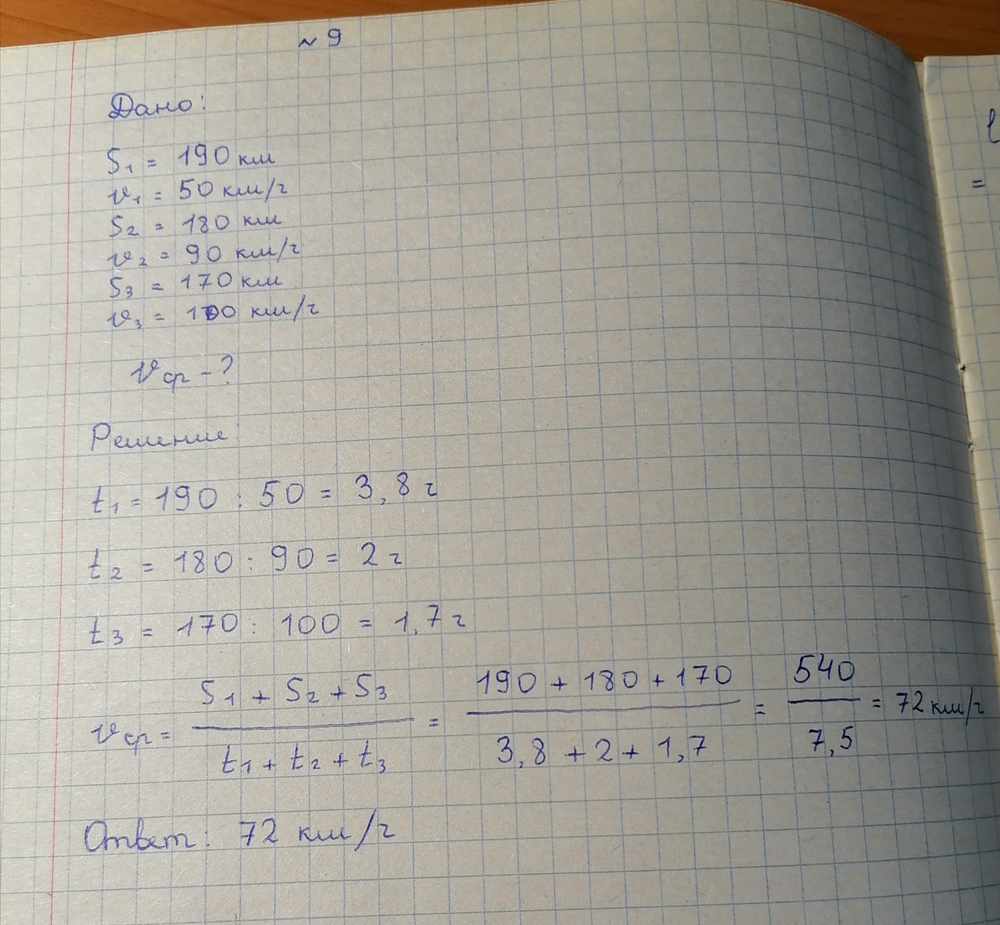 № 9
Дано:
S₁ = 190 км
v₁ = 50 км/г
S₂ = 180 км
v₂ = 90 км/г
S₃ = 170 км
v₃ = 100 км/г
vср - ?
Решение
t₁ = 190 : 50 = 3,8 г
t₂ = 180 : 90 = 2 г
t₃ = 170 : 100 = 1,7 г
vср = (S₁ + S₂ + S₃)/(t₁ + t₂ + t₃) = (190 + 180 + 170)/(3,8 + 2 + 1,7) = 540/7,5 = 72 км/г
Ответ: 72 км/г
=